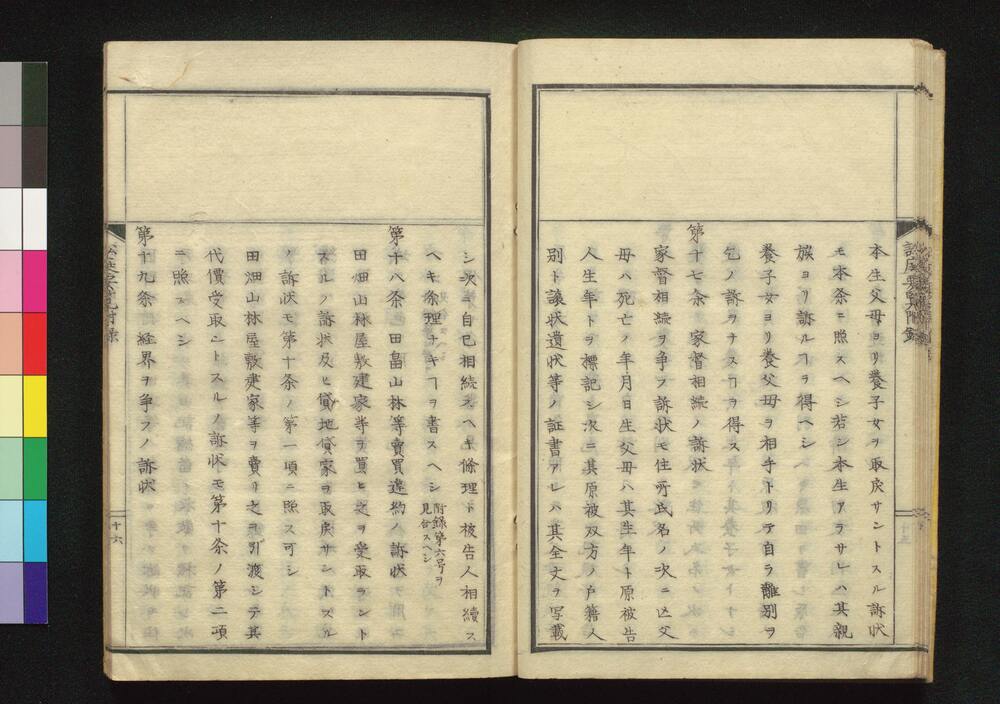 本生父母ヨリ養子女ヲ取戻サントスル訴状
モ本条ニ照スヘシ若シ本生アラサレハ其親
族ヨリ訴ルヿヲ得ヘシ
養子女ヨリ養父母ヲ相手トリテ自ラ離別ヲ
乞ノ訴ヲナスヿヲ得ス
第十七条 家督相続ノ訴状
家督相続ヲ争フ訴状モ住所氏名ノ次ニ亡父
母ハ死亡ノ年月日生父母ハ其生年ト原被告
人生年トヲ標記シ次ニ其原被双方ノ戸籍人
別ト譲状遺状等ノ証書アレハ其全文ヲ写載
シ次ニ自己相続スヘキ條理ト被告人相續ス
ヘキ条理ナキヿヲ書スヘシ 附録第六号ヲ見合スヘシ
第十八条 田畠山林等賣買違約ノ訴状
田畑山林屋敷建家等ヲ買ヒ之ヲ受取ラント
スルノ訴状及ヒ貸地貸家ヲ取戻サントスル
ノ訴状モ第十条ノ第一項ニ照ス可シ
田畑山林屋敷建家等ヲ賣リ之ヲ引渡シテ其
代價受取ントスルノ訴状モ第十条ノ第二項
ニ照スヘシ
第十九条 経界ヲ争フノ訴状
十六